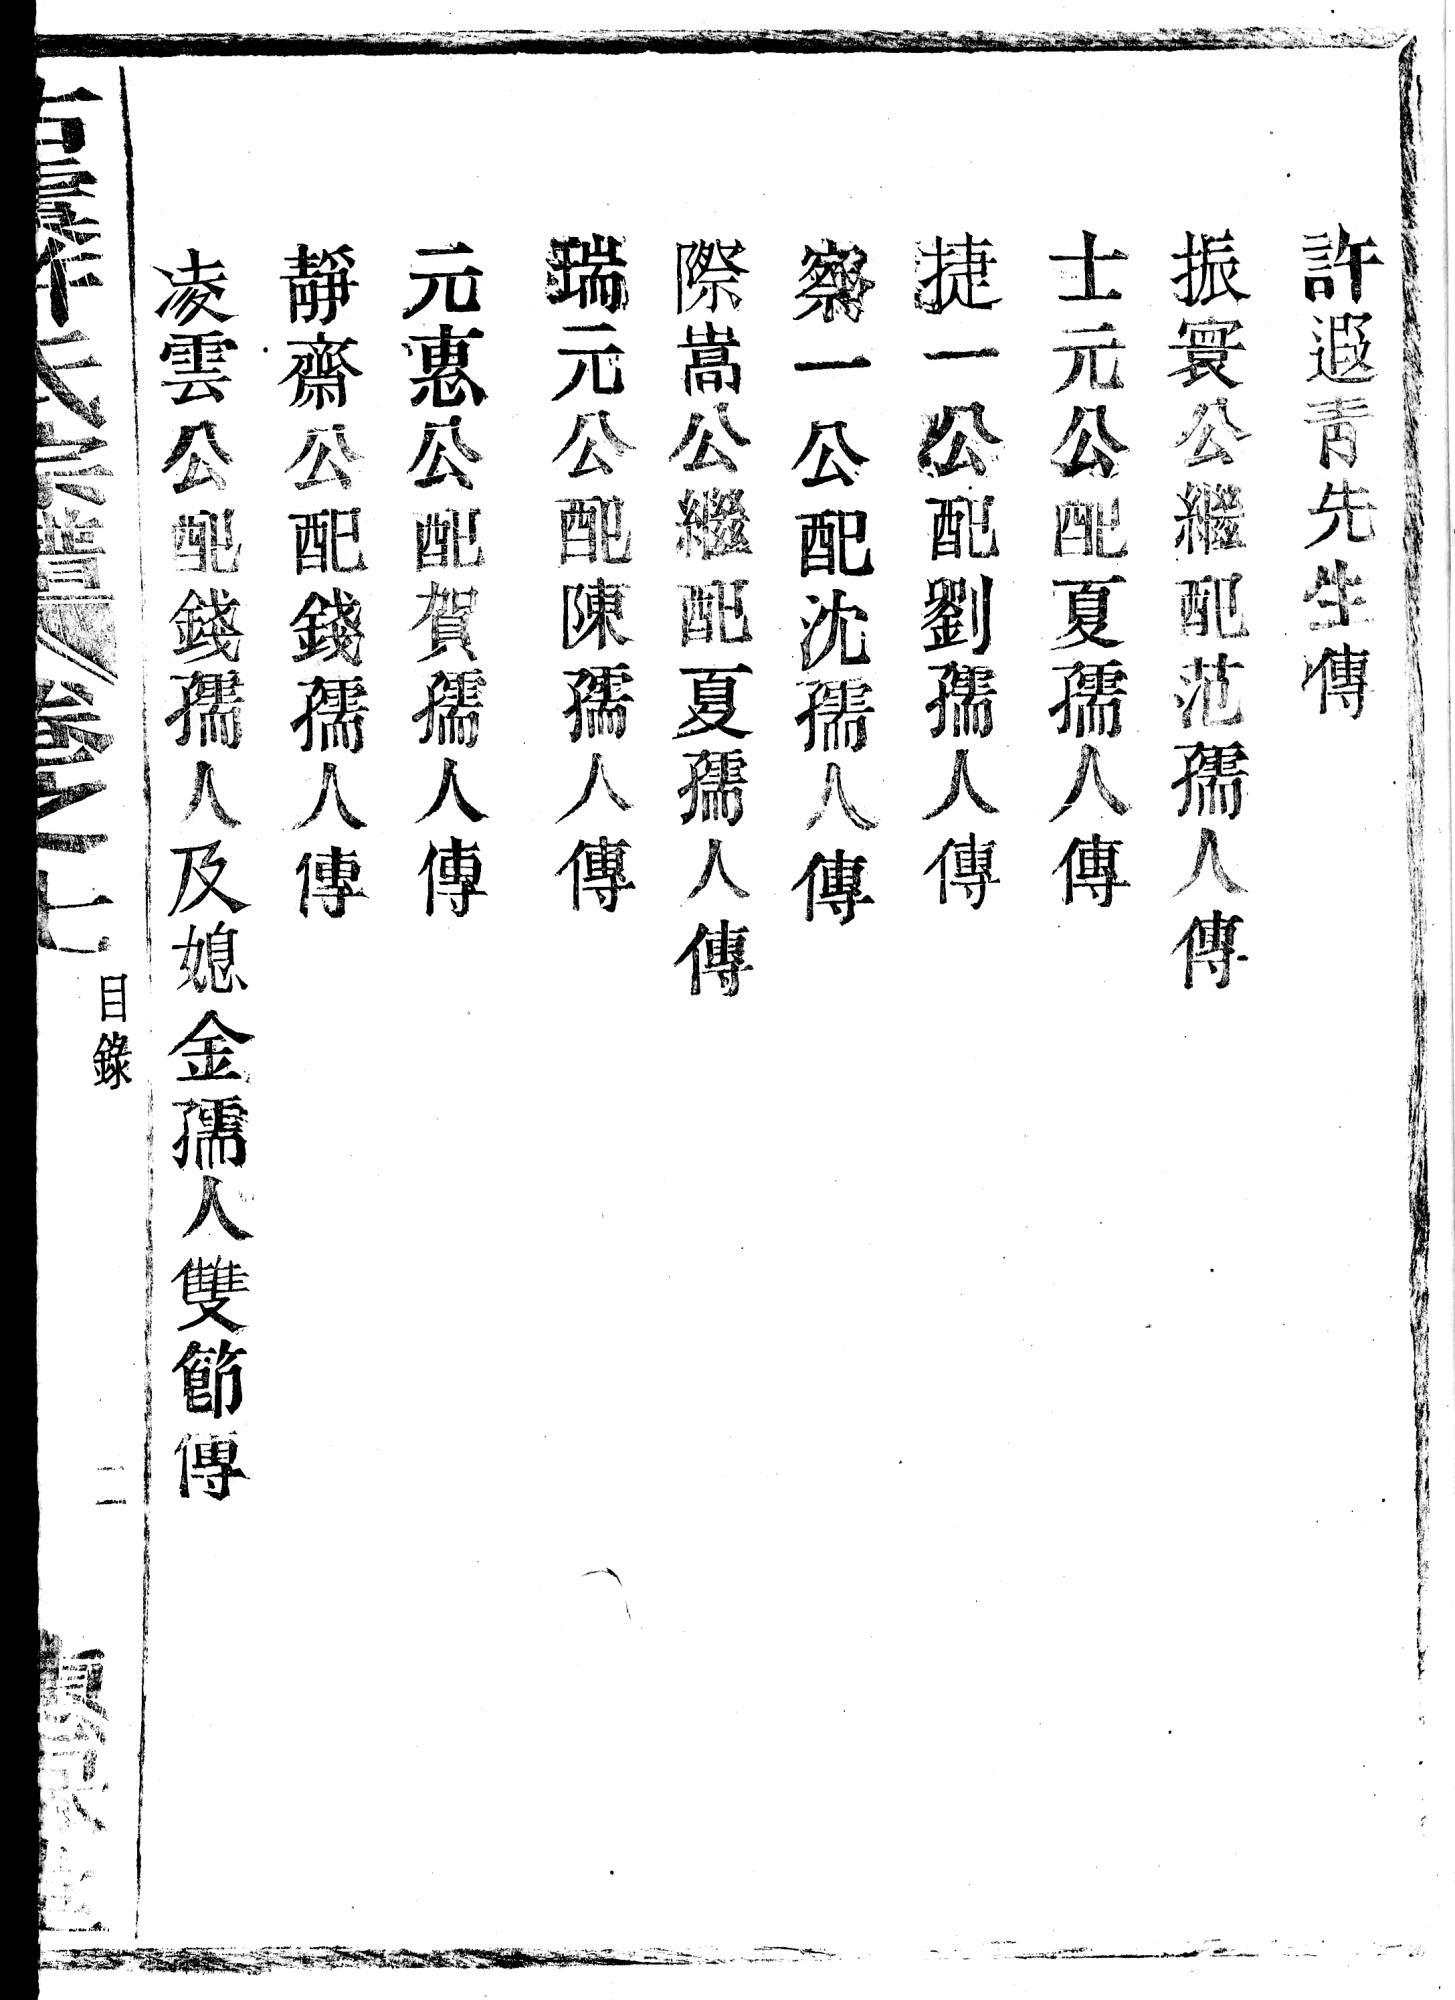 許遐青先生傳
振寰公繼配范孺人傳
士元公配夏孺人傳
捷一公配劉孺人傳
察一公配沈孺人傳
際嵩公繼配夏孺人傳
瑞元公配陳孺人傳
元惠公配賀孺人傳
靜齋公配錢孺人傳
凌雲公配錢孺人及媳金孺人雙節傳
氏宗譜 卷之七
目錄
二